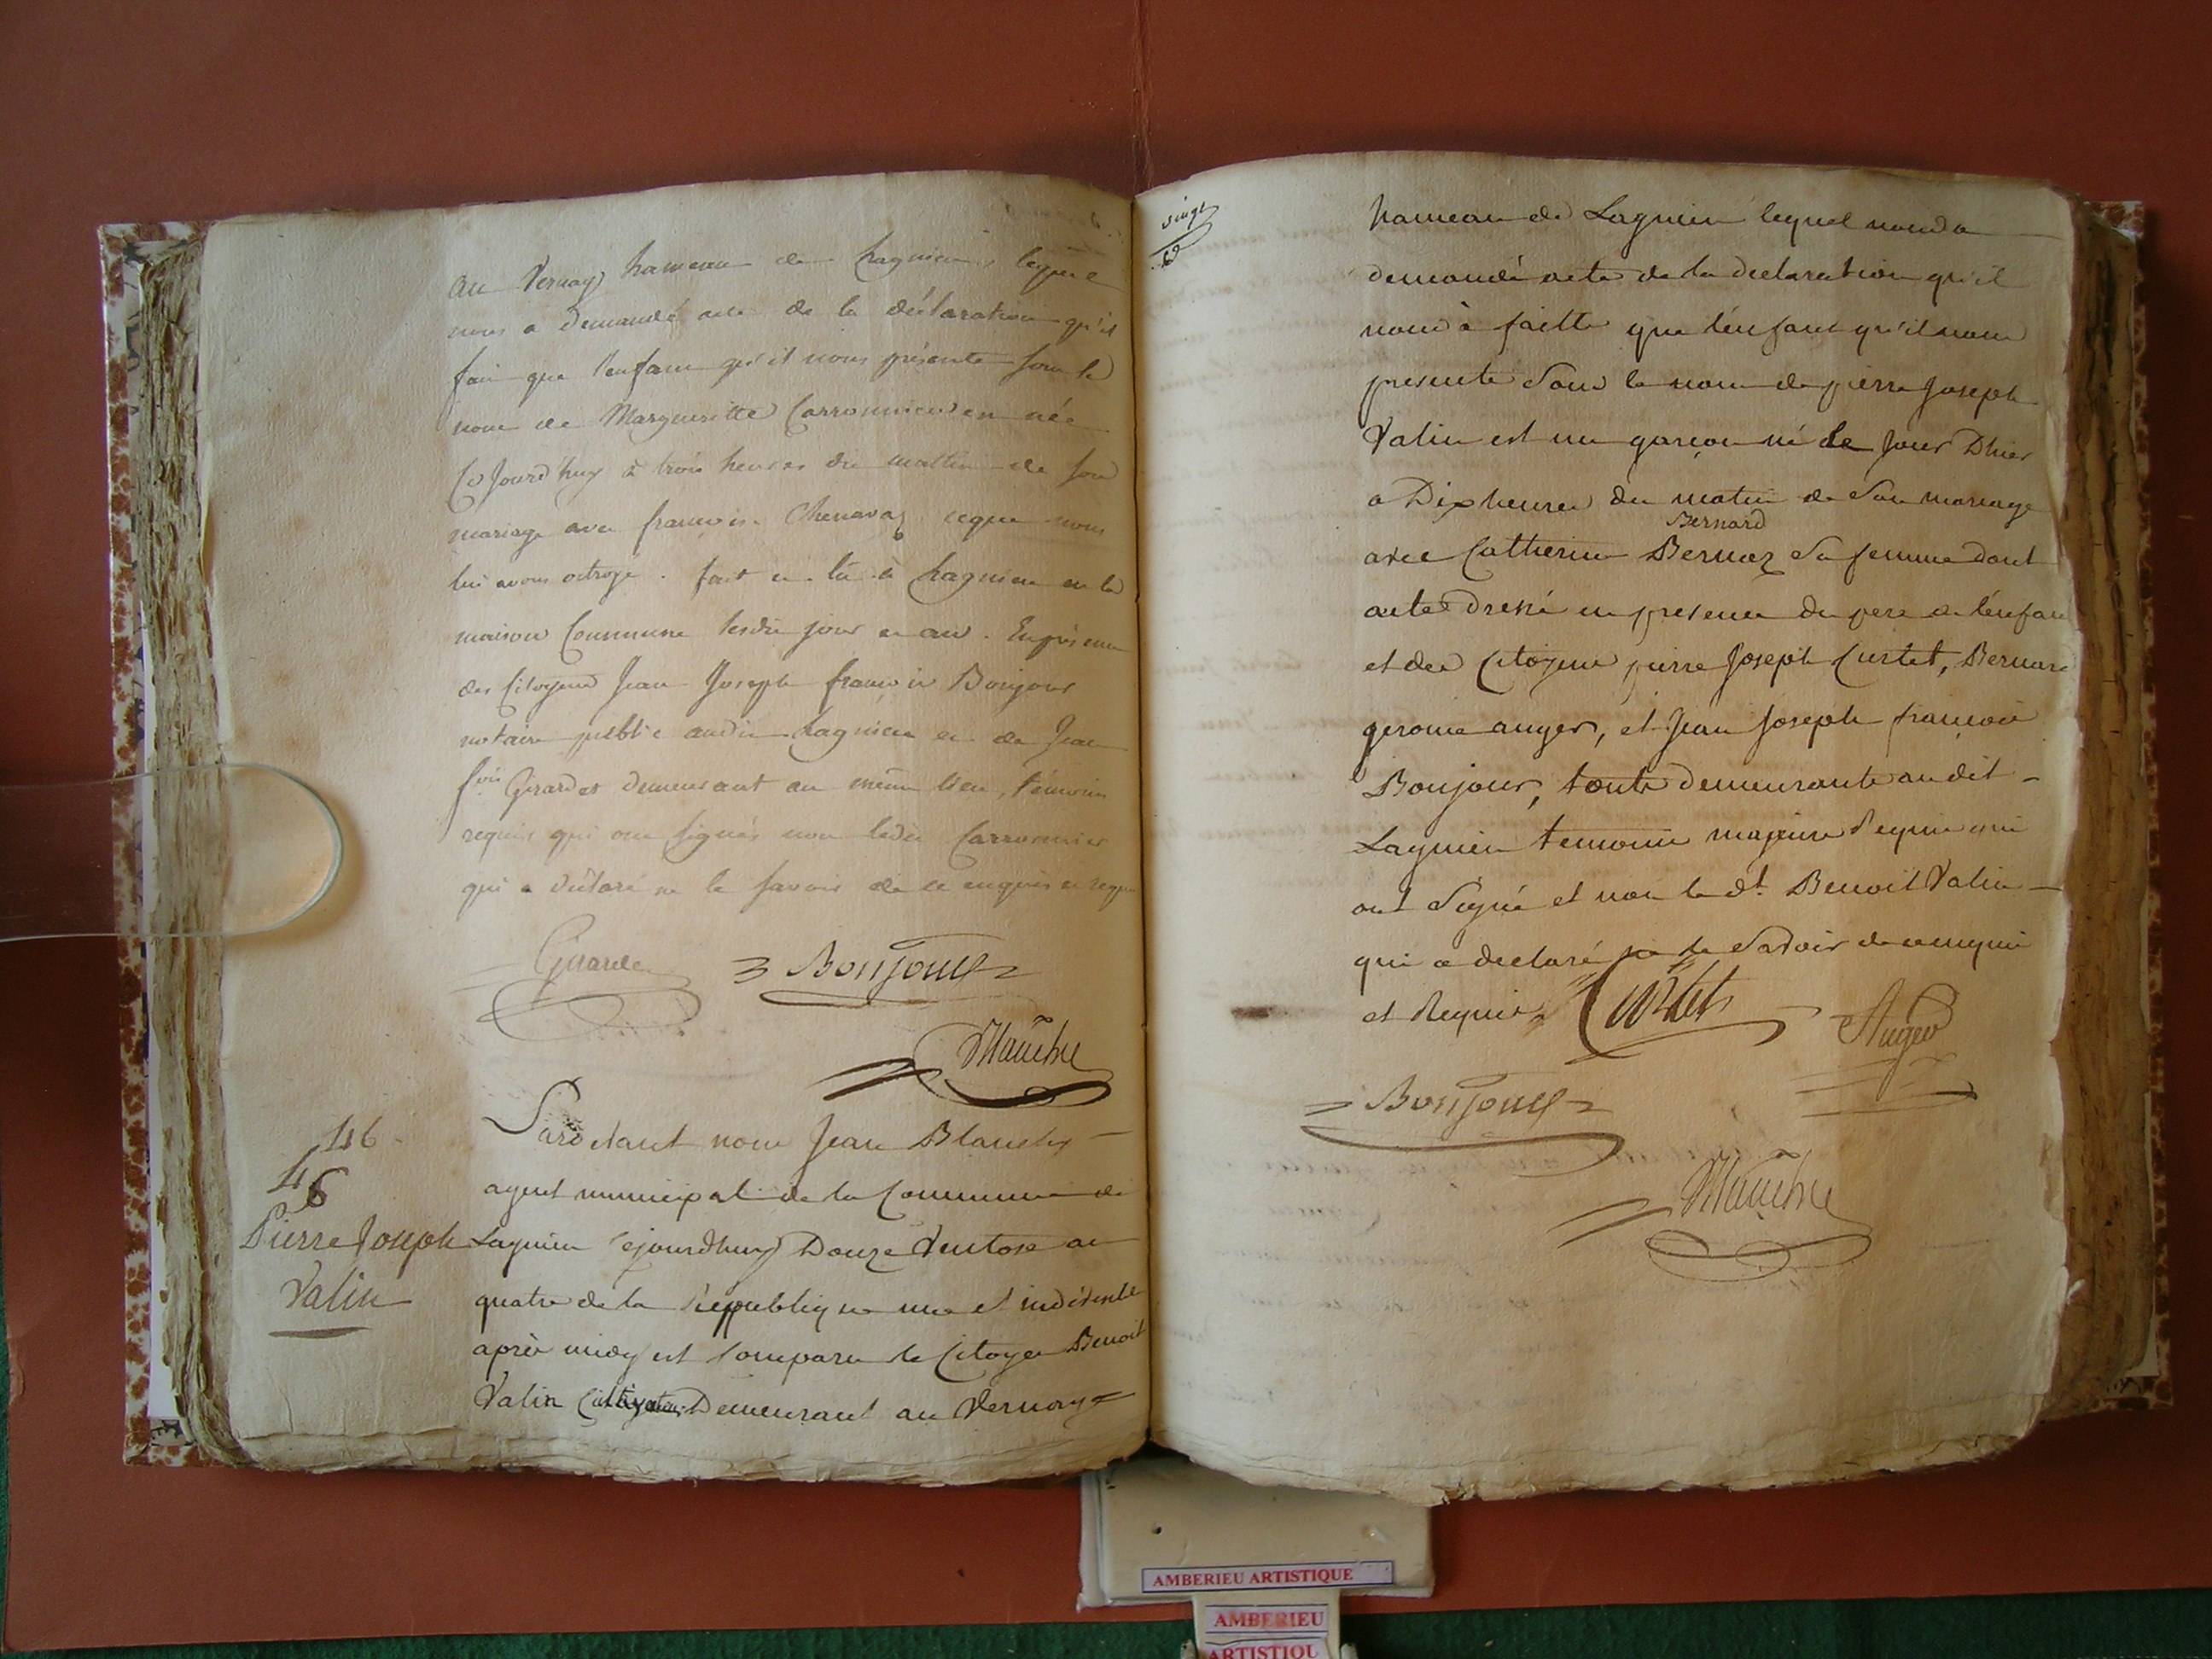 au Vernay hameau de Lagnieu lequel
nous a demandé acte de la déclaration qu'il
fait que l'enfant qu'il nous présente sous le
nom de Margueritte Carronnier est née
Cejourd'huy à trois heures du mattin de son
mariage avec françoise Chenavaz ce que nous
lui avons octroyé. fait et lu à Lagnieu en la
maison Commune lesdits jour et an. En présence
des Citoyens Jean Joseph françois Bonjour
notaire public audit Lagnieu et de Jean
fois Girardet demeurant au même lieu, témoins
requis qui ont signés non ledit Carronnier
qui a déclaré ne le savoir de ce enquis et requis
Girardet Bonjour
Blanchy
Pardevant nous Jean Blanchy
agent municipal de la Commune de
Lagnieu cejourdhuy Douze Ventose an
quatre de la République une et indivisible
après midy est Comparu le Citoyen Benoit
Valin Cultivateur Demeurant au Vernay
46
46
Pierre Joseph
Valin
vingt
hameau de Lagnieu lequel nous a
demandé acte de la declaration qu'il
nous à faitte que l'enfant qu'il nous
presente sous le nom de pierre Joseph
Valin est un garçon né le Jour Dhier
a Dix heures du matin de son mariage
Bernard
avec Catherine Bernaz sa femme dont
acte dressé en presence du pere de l'enfant
et des Citoyens pierre Joseph Curtet, Bernard
gerome auger, et Jean Joseph françois
Bonjour, touts demeurants audit
Lagnieu temoins majeurs Requis qui
ont Signé et non le dt. Benoit Valin
qui a declaré ne le Savoir de ce enquis
et Requis Curtet Auger
Bonjour
Blanchy
AMBERIEU ARTISTIQUE
AMBERIEU
ARTISTIQU